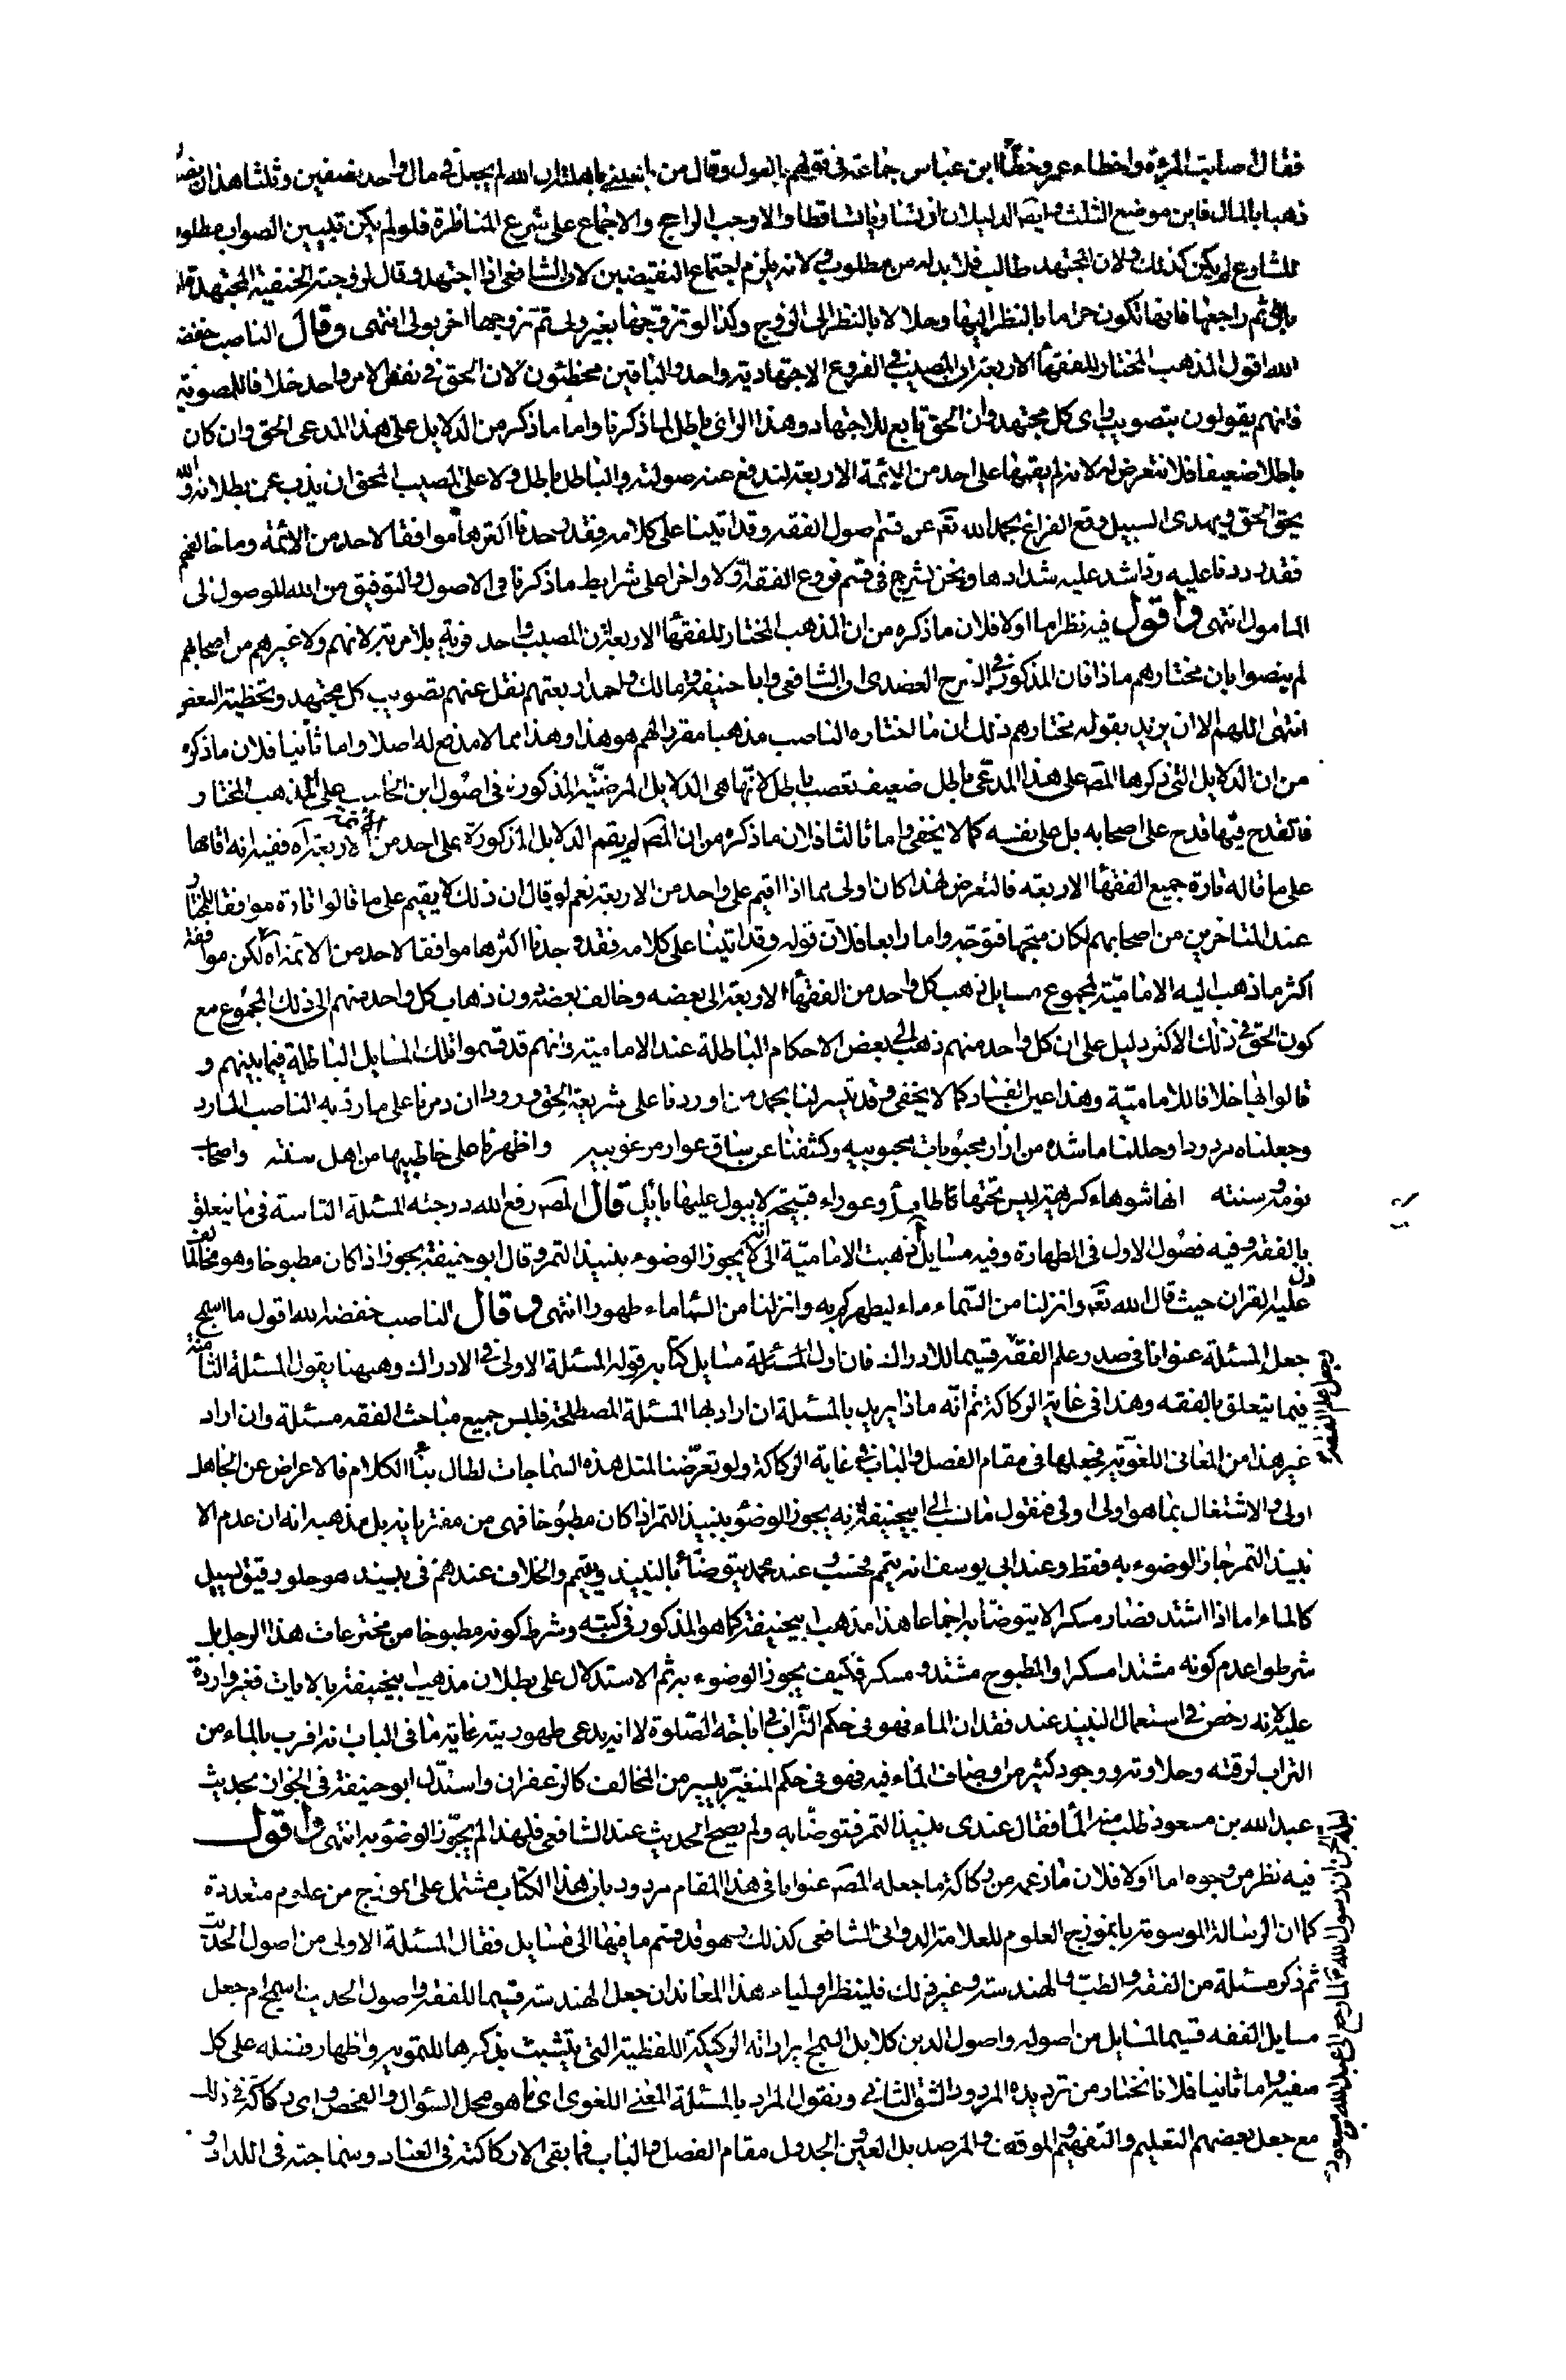 فقال اصابت المرئة واخطاء عمر وخطّا ابن عباس جماعة فى قولهم بالعول وقال من باهلنى باهلته ان الله لم يجعل فى مال واحد نصفين وثلثا هذان نصفان
ذهبا بالمال فاين موضع الثلث وايضا الدليلان ان تساويا تساقطا والا وجب الراجح والاجماع على شرع المناظرة فلو لم يكن تبيين الصواب مطلوبا
للشارع لم يكن كذلك ولان المجتهد طالب فلا بد له من مطلوب ولانه يلزم اجتماع النقيضين لان الشافعى اذا اجتهد وقال لزوجته الحنفية المجتهدة انت
باين ثم راجعها فانها تكون حراما بالنظر اليها وحلالا بالنظر الى الزوج وكذا لو تزوجها بغير ولى ثم تزوجها اخر بولى انتهى وقال الناصب خفضه
الله اقول المذهب المختار للفقهاء الاربعة ان المصيب فى الفروع الاجتهادية واحد والباقين مخطئون لان الحق فى نفس الامر واحد خلافا للمصوبة
فانهم يقولون بتصويب راى كل مجتهد وان الحق تابع للاجتهاد وهذا الراى باطل لما ذكرنا واما ما ذكر من الدلايل على هذا المدعى الحق وان كان
باطلا ضعيفا فلا نتعرض له لانه لم يقمها على احد من الائمة الاربعة لندفع عنه صولته والباطل باطل ولا على المصيب المحق ان يذب عن بطلانه والله
يحق الحق ويهدى السبيل وقع الفراغ بحمد الله تعَ عن قسم اصول الفقه وقد اتينا على كلامه فقد وجدنا اكثرها موافقا لاحد من الائمة وما خالفهم
فقد رددنا عليه ردا شد عليه شدادها ونحن نشرع فى قسم فروع الفقه اوّلا واخرا على شرايط ما ذكرنا فى الاصول والتوفيق من الله للوصول الى
المامول انتهى واقول فيه نظر اما اولا فلان ما ذكره من ان المذهب المختار للفقهاء الاربعة ان المصيب واحد فرية بلا مرية لانهم ولا غيرهم من اصحابهم
لم ينصوا بان مختارهم ماذا فان المذكور فى الشرح العضدى ان الشافعى وابا حنيفة ومالك واحمد اربعتهم نقل عنهم تصويب كل مجتهد وتخطية البعض
انتهى اللهم الا ان يريد بقوله مختارهم ذلك ان ما اختاره الناصب مذهبا مقررا لهم هو هذا وهذا مما لا مدفع له اصلا واما ثانيا فلان ما ذكره
من ان الدلايل التى ذكرها المصَ على هذا المدّعى باطل ضعيف تعصب باطل لانّها هى الدلايل المرضيّة المذكورة فى اصول ابن الحاجب على المذهب المختار
فالقدح فيها قدح على اصحابه بل على نفسه كما لا يخفى واما ثالثا فلان ما ذكره من ان المصَ لم يقم الدلايل المذكورة على احد من الائمة الاربعة آه ففيه انه اقامها
على ما قاله تارة جميع الفقهاء الاربعه فالتعرض لهذا كان اولى مما اذا اقيم على واحد من الاربعة نعم لو قال ان ذلك لا يقيم على ما قالوا تارة موافقا للمختار
عند المتاخرين من اصحابهم لكان متجها فتوجه واما رابعا فلان قوله وقد اتينا على كلامه فقد وجدنا اكثرها موافقا لاحد من الائمة آه لكن موافقة
اكثر ما ذهب اليه الامامية لمجموع مسايل ذهب كل واحد من الفقهاء الاربعة الى بعضه وخالف بعضه دون ذهاب كل واحد منهم الى ذلك المجموع مع
كون الحق فى ذلك الاكثر دليل على ان كل واحد منهم ذهب الى بعض الاحكام الباطلة عند الامامية فانهم قد قسموا تلك المسايل الباطلة فيما بينهم و
قالوا بها خلافا للامامية وهذا عين الفساد كما لا يخفى وقد تيسر لنا بحمد من اوردنا على شريعة الحق ورود ان دمرنا على ما رد به الناصب المارد
وجعلناه مردودا وحللنا ما شده من ازار محبوبات محبوبيه وكشفنا عن ساق عوار مرغوبيه واظهرنا على خاطبيها من اهل سنته واصحاب
نومه وسنته انها شوهاء كريهة ليس تحتها طايل وعوراء قبيحة لا يبول عليها بائل قال المصَ رفع الله درجته المسئلة الثامنة فى ما يتعلق
بالفقه وفيه فصول الاول فى الطهارة وفيه مسايل آ ذهبت الامامية الى انه لا يجوز الوضوء بنبيذ التمر وقال ابو حنيفة يجوز اذا كان مطبوخا وهو مخالف لما
دل عليه القران حيث قال الله تعَ وانزلنا من السّماء ماء ليطهركم به وانزلنا من السماء ماء طهورا انتهى وقال الناصب خفضه الله اقول ما اسمج
جعل المسئلة عنوانا فى صدر علم الفقه قسيما للادراك فان اول المسئلة مسايل كتابه قوله المسئلة الاولى فى الادراك وهيهنا يقول المسئلة الثامنة
فيما يتعلق بالفقه وهذا فى غاية الركاكة ثم انّه ماذا يريد بالمسئلة ان اراد بها المسئلة المصطلحة فليس جميع مباحث الفقه مسئلة وان اراد
غير هذا من المعانى اللغويّة فجعلها فى مقام الفصل والباب فى غاية الركاكة ولو تعرّضنا لمثل هذه السماجات لطال بنا الكلام فالاعراض عن الجاهل
اولى والاشتغال بما هو اولى اولى فنقول ما نسب الى ابيحنيفة انه يجوز الوضوء بنبيذ التمر اذا كان مطبوخا فهى من مفترياته بل مذهبه انه ان عدم الا
نبيذ التمر جاز الوضوء به فقط وعند ابى يوسف انه يتيمم فحسب وعند محمد يتوضّأ بالنبيذ ويتيمم والخلاف عندهم فى نبيذ هو حلو رقيق يسيل
كالماء اما اذا اشتد فصار مسكرا لا يتوضّا به اجماعا هذا مذهب ابيحنيفة كما هو المذكور فى كتبه وشرط كونه مطبوخا من مخترعات هذا الرجل بل
شرطوا عدم كونه مشتدا مسكرا والمطبوخ مشتد ومسكر فكيف يجوز الوضوء به ثم الاستدلال على بطلان مذهب ابيحنيفة بالايات فغير واردة
عليه لانه رخص فى استعمال النبيذ عند فقدان الماء فهو فى حكم التراب فى اباحة الصّلوة لا انه يدعى طهوريته غاية ما فى الباب انه اقرب بالماء من
التراب لرقته وحلاوته ووجود كثير من اوصاف الماء فيه فهو فى حكم المتغيّر بيسير من المخالف كالزعفران واستدّل ابو حنيفة فى الجواز بحديث
عبد الله بن مسعود فطلب منه الماء فقال عندى نبيذ التمر فتوضّا به ولم يصح الحديث عند الشافعى فلهذا لم يجوّز الوضوء به انتهى واقول
فيه نظر من وجوه اما اولا فلان ما زعمه من ركاكة ما جعله المصَ عنوانا فى هذا المقام مردود بان هذا الكتاب مشتمل على انموذج من علوم متعددة
كما ان الرسالة الموسومة بانموذج العلوم للعلامة الدوانى الشافعى كذلك وهو قد قسم ما فيها الى مسايل فقال المسئلة الاولى من اصول الحديث
ثم ذكر مسئلة من الفقه والطب والهندسة وغير ذلك فلينظر اولياء هذا المعاند ان جعل الهندسة قسيما للفقه واصول الحديث اسمج ام جعل
مسايل الفقه قسيما لمسايل من اصوله واصول الدين كلا بل السمج ايراداته الركيكة اللفظية التى يتشبث بذكرها للتمويه واظهار فضله على كل
سفيه واما ثانيا فلانا نختار من ترديده المردود الشق الثانى ونقول المراد بالمسئلة المعنى اللغوى اى ما هو محل السؤال والفحص واى ركاكة فى ذلك
مع جعل بعضهم التعليم والتفهيم والموقف والمرصد بل العين والجدول مقام الفصل والباب فما بقى الا ركاكته فى العناد وسماجته فى اللداد و
يجعل علم الفقه
ليلة الجن ان رسول الله لما رجع الى عبد الله بن مسعود